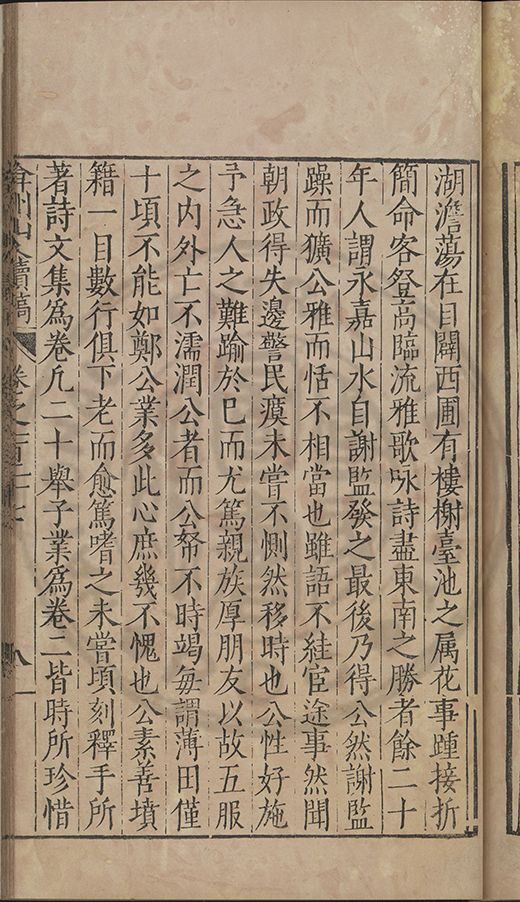 湖澹蕩在目闢西圃有樓榭臺池之属花事踵接折
簡命客登高臨流雅歌咏詩盡東南之勝者餘二十
年人謂永嘉山水自謝監發之最後乃得公然謝監
躁而獷公雅而恬不相當也雖語不絓宦途事然聞
朝政得失邊警民瘼未嘗不惻然移時也公性好施
予急人之難踰於巳而尤篤親族厚朋友以故五服
之内外亡不濡潤公者而公帑不時竭每謂薄田僅
十頃不能如鄭公業多此心庶幾不愧也公素善墳
籍一目數行俱下老而愈篤嗜之未嘗頃刻釋手所
著詩文集為卷凡二十舉子業為卷二皆時所珍惜
弇州山人續稿 卷之一百二十七 八